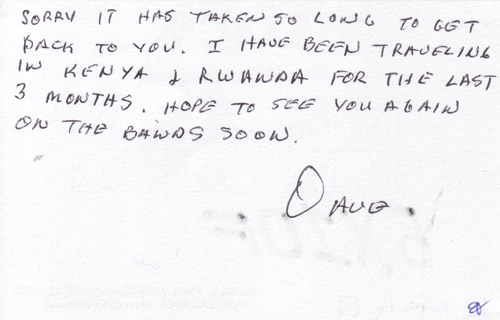 SORRY IT HAS TAKEN SO LONG TO GET
BACK TO YOU. I HAVE BEEN TRAVELING
IN KENYA & RWANDA FOR THE LAST
3 MONTHS. HOPE TO SEE YOU AGAIN
ON THE BANDS SOON.
DAVE